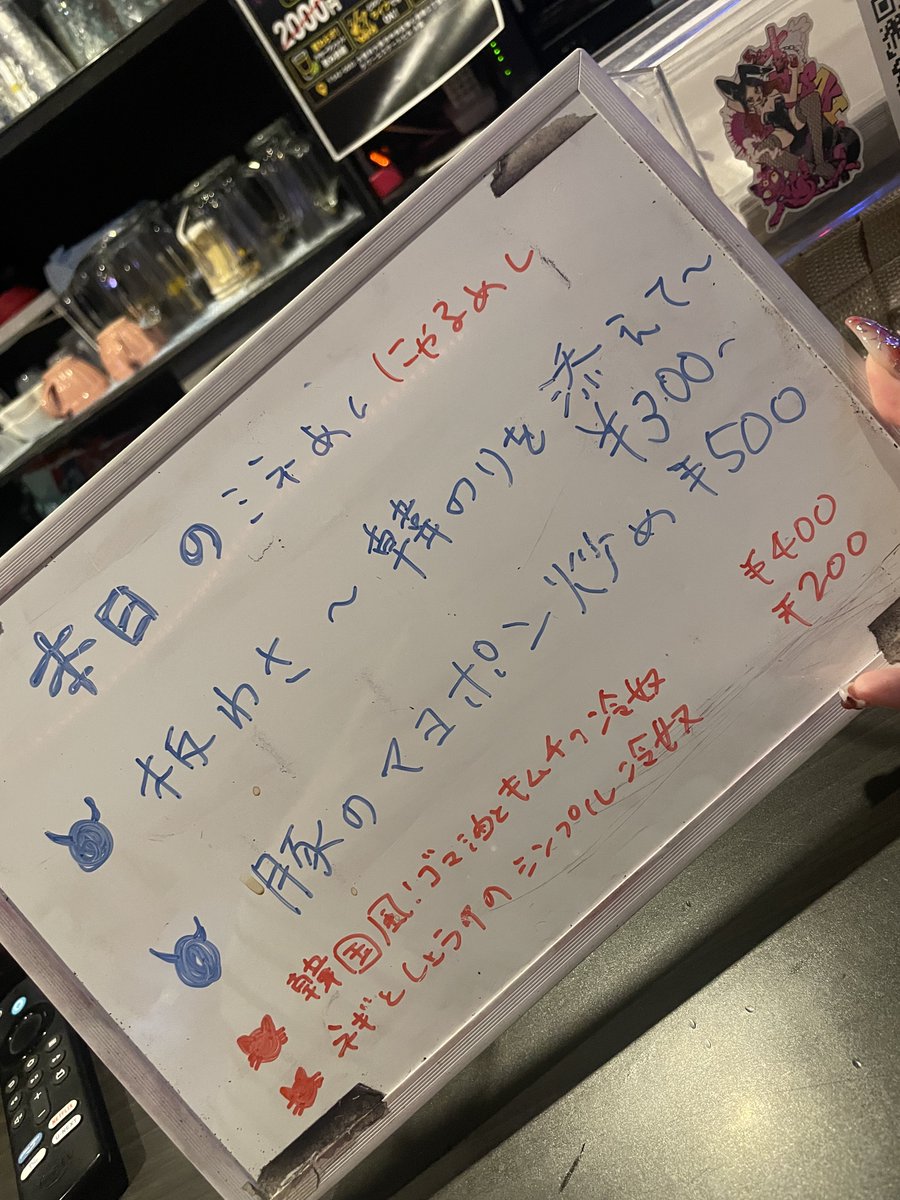 本日の汗めし にゃるめし
板わさ～韓のりを添えて～
¥300~
豚のマヨポン炒め ¥500
韓国風!ゴマ油とキムチの冷奴 ¥400
ネギとしょうがのシンプル冷奴 ¥200
2000円